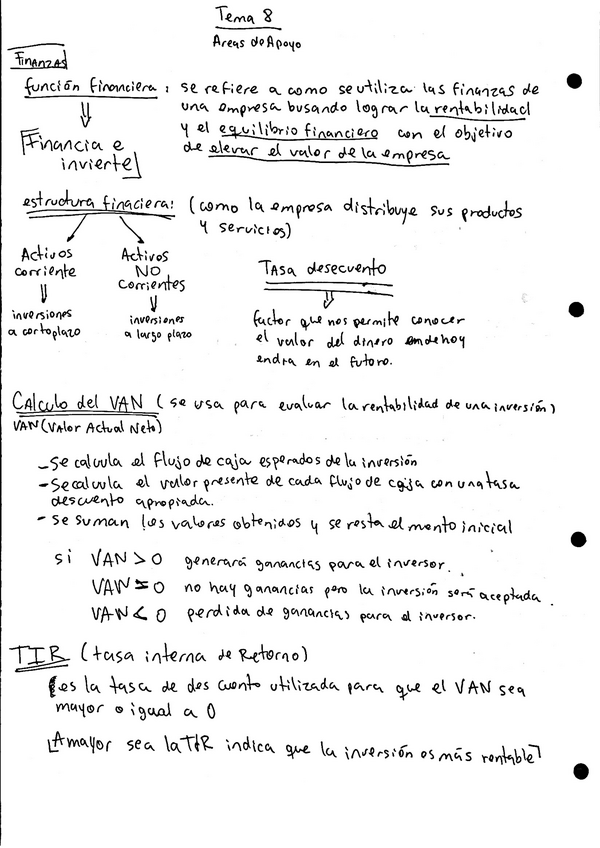 Tema 8
Areas de Apoyo
Finanzas
función financiera : se refiere a como se utiliza las finanzas de
una empresa busando lograr la rentabilidad
y el equilibrio financiero con el objetivo
de elevar el valor de la empresa
[Financia e
invierte]
estructura finaciera: (como la empresa distribuye sus productos
y servicios)
Activos
corriente
inversiones
a corto plazo
Activos
NO
Corrientes
inversiones
a largo plazo
TASA desecuento
factor que nos permite conocer
el valor del dinero de hoy
endra en el futoro.
CAlculo del VAN ( se usa para evaluar la rentabilidad de una inversión)
VAN (VAlor Actual Neto)
- Se calcula el flujo de caja esperados de la inversión
- Se calcula el valor presente de cada flujo de caja con una tasa
descuento apropiada.
- Se suman los valores obtenidos y se resta el monto inicial
si VAN > 0 generará ganancias para el inversor.
VAN = 0 no hay ganancias pero la inversión será aceptada.
VAN < 0 perdida de ganancias para el inversor.
TIR (tasa interna de Retorno)
[es la tasa de des cuento utilizada para que el VAN sea
mayor o igual a 0
[A mayor sea la TIR indica que la inversión es más rentable]